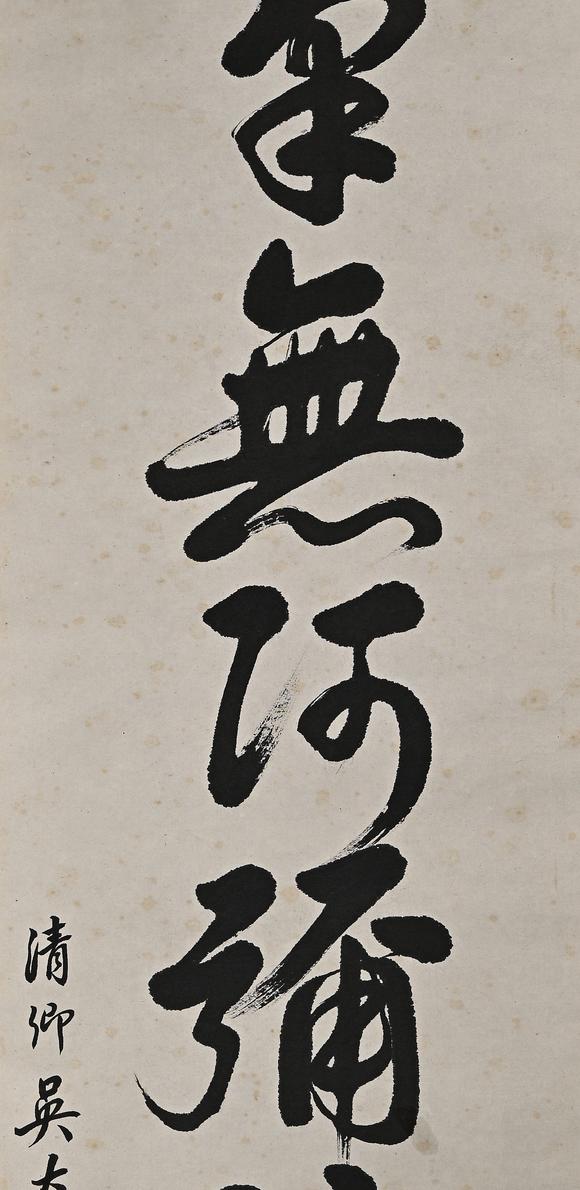 無阿彌
清卿吳大